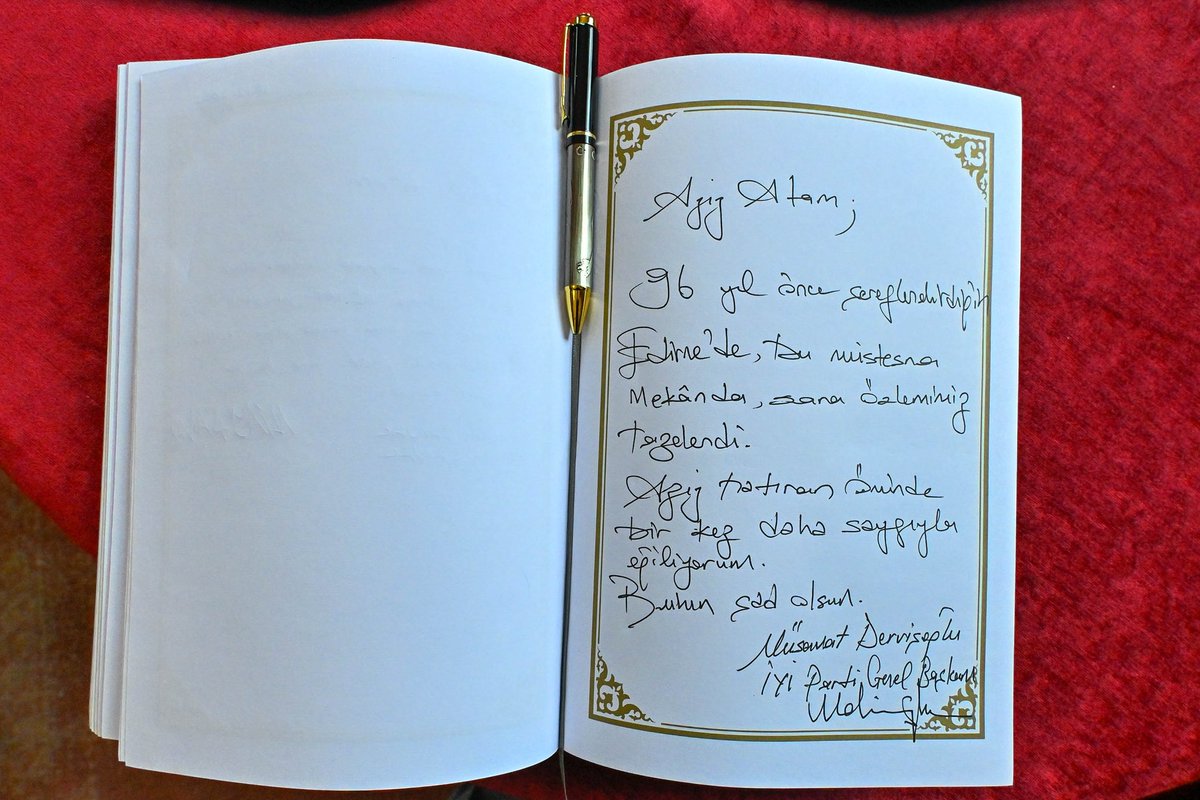 Aziz Atam;
96 yıl önce şereflendirdiğin
Edirne'de, bu müstesna
mekânda, sana özlemimiz
tazelendi.
Aziz hatıran önünde
bir kez daha saygıyla
eğiliyorum.
Ruhun şad olsun.
Müsavat Dervişoğlu
İYİ Parti Genel Başkanı